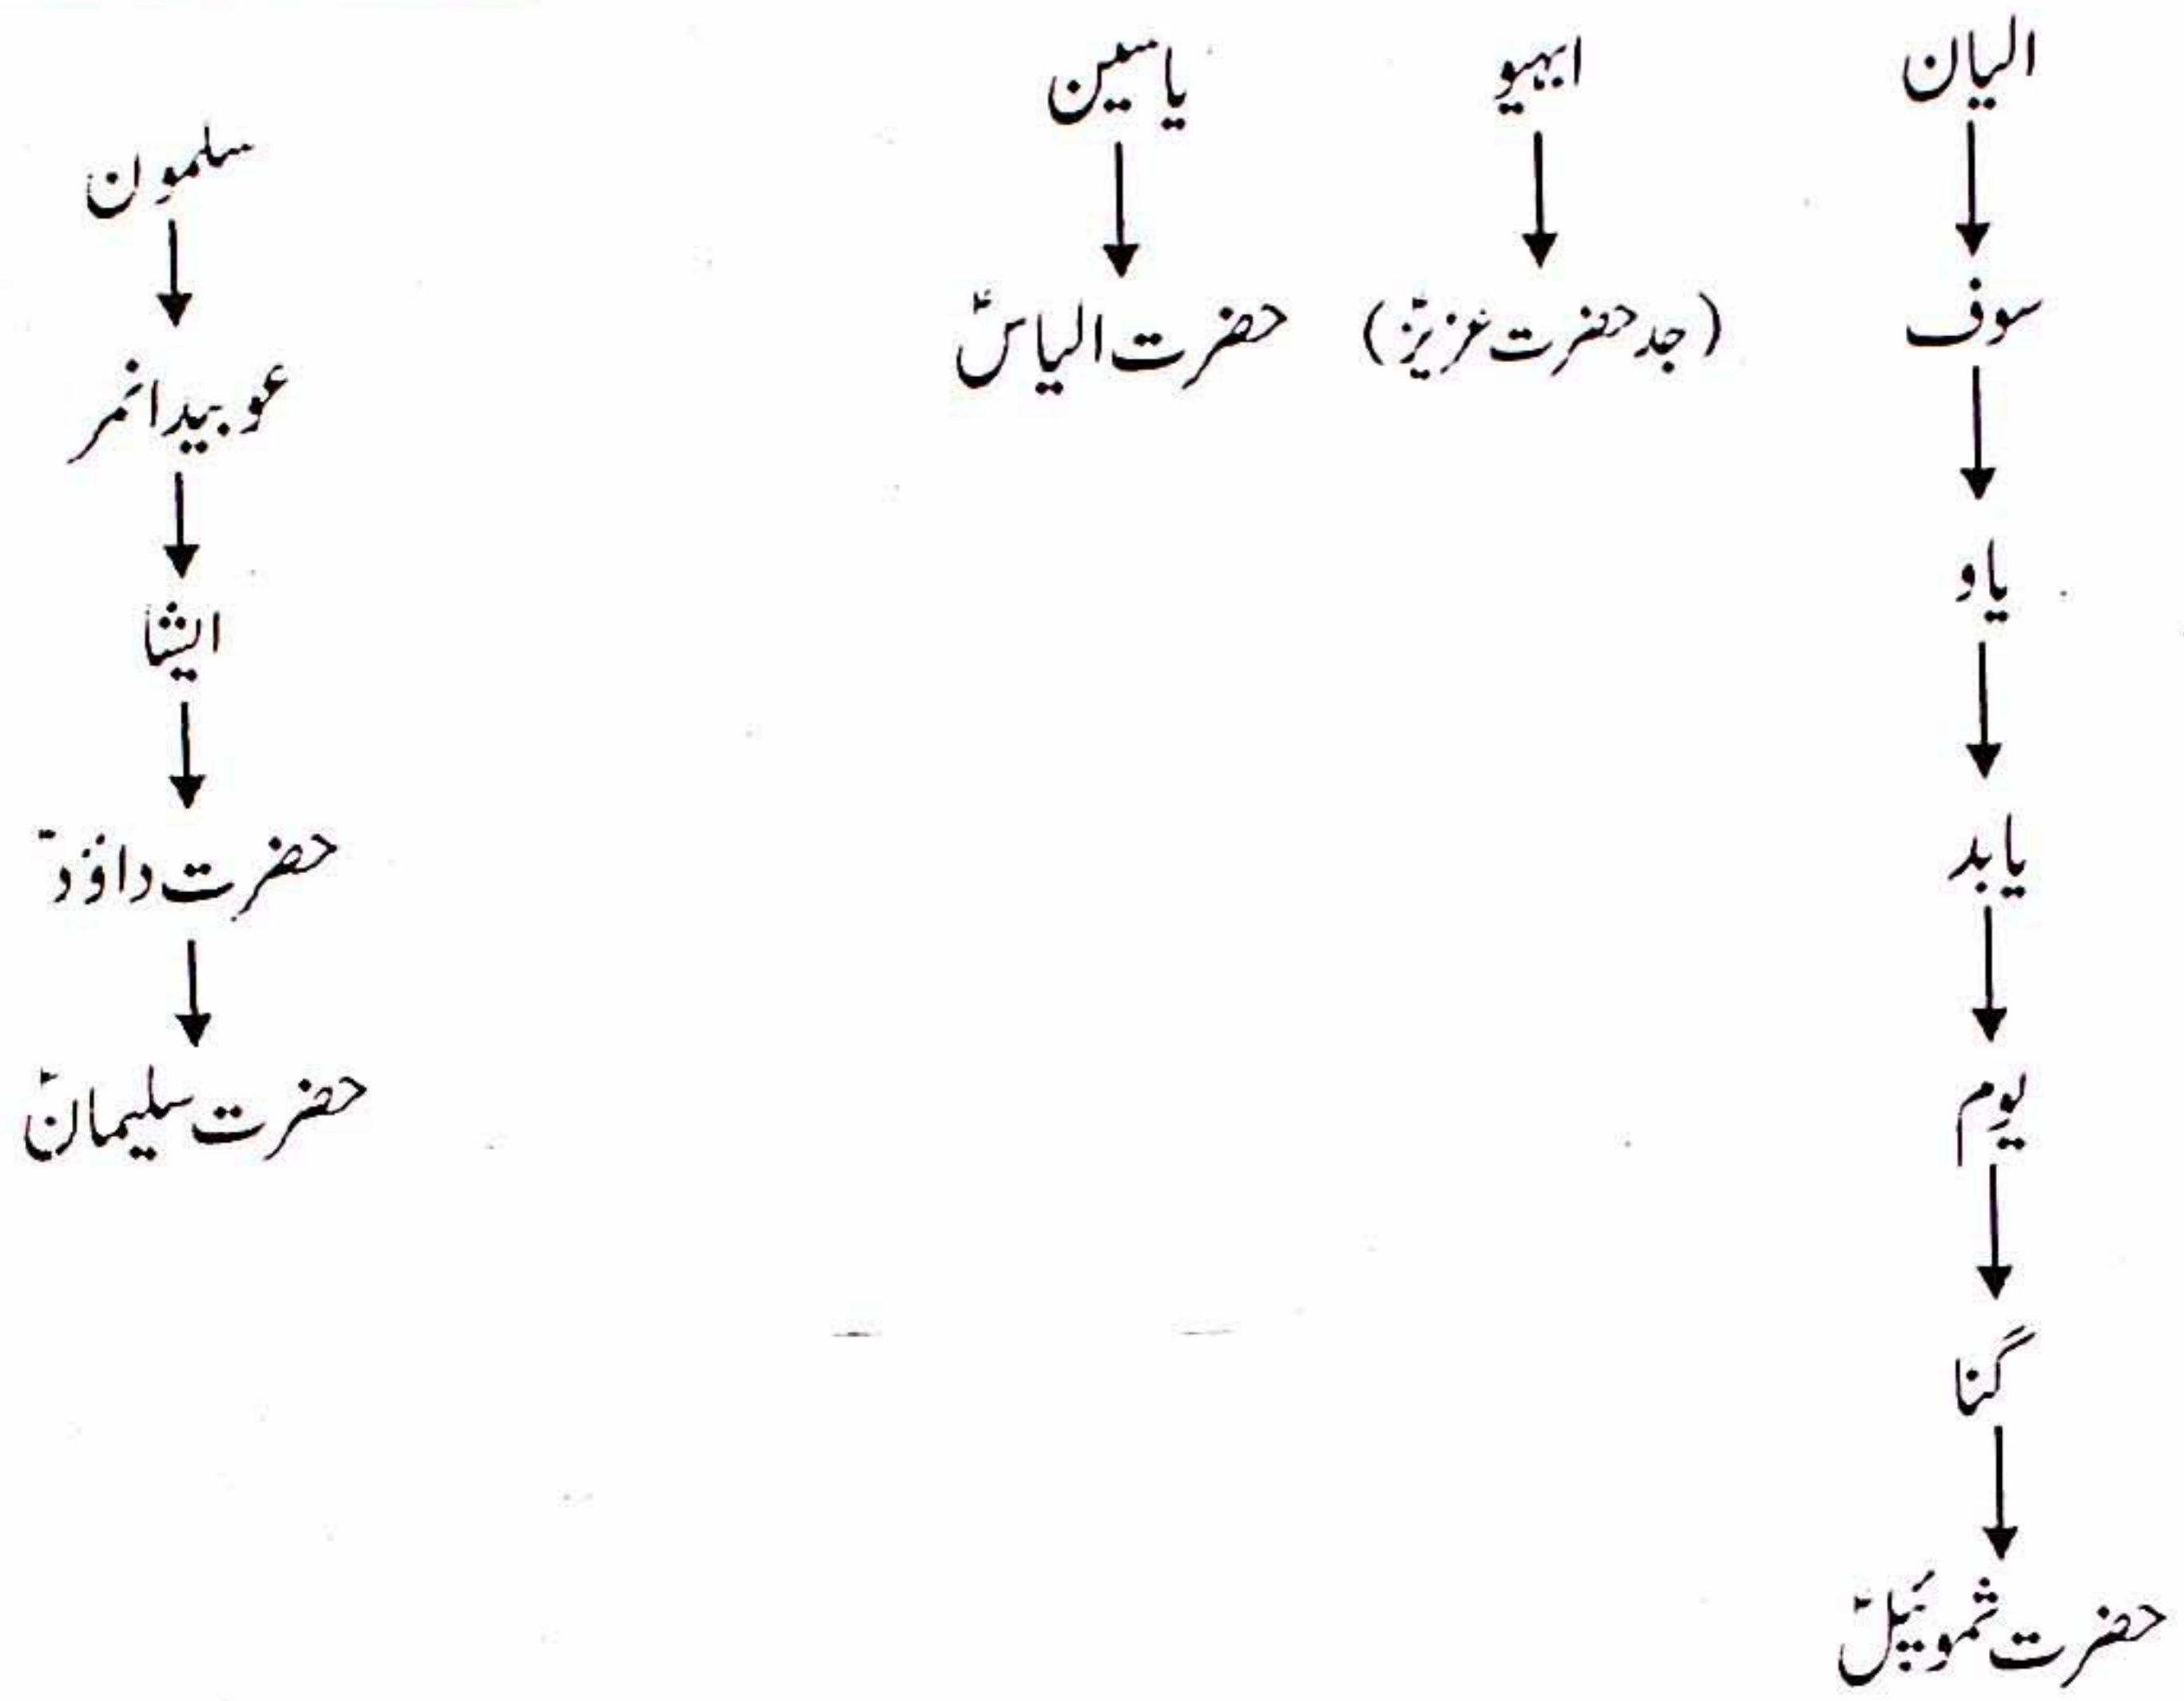 الیان
سوف
یاو
یابد
یوم
گنا
حضرت شموئیلؑ
ابہیو
(جد حضرت عزیرؑ)
یاسین
حضرت الیاسؑ
سلمون
عوبید انمر
ایشا
حضرت داؤدؑ
حضرت سلیمانؑ